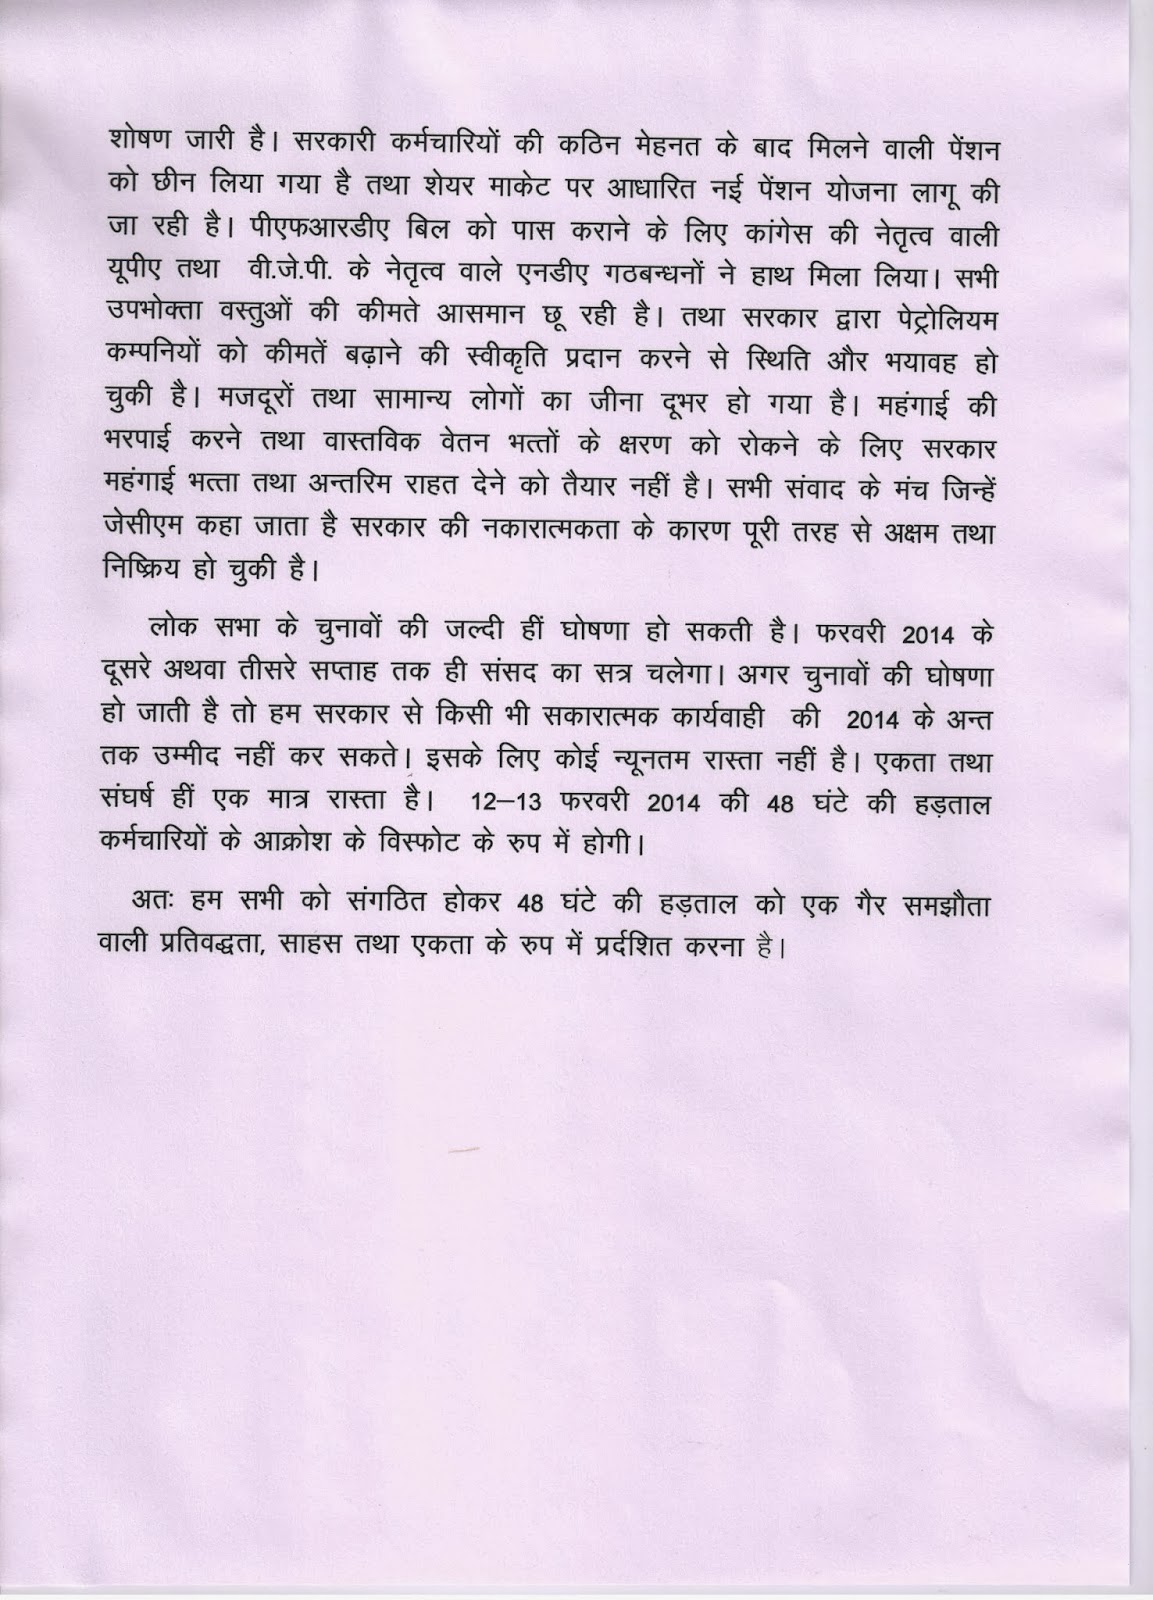 शोषण जारी है। सरकारी कर्मचारियों की कठिन मेहनत के बाद मिलने वाली पेंशन
को छीन लिया गया है तथा शेयर माकेट पर आधारित नई पेंशन योजना लागू की
जा रही है। पीएफआरडीए बिल को पास कराने के लिए कांगेस की नेतृत्व वाली
यूपीए तथा वी.जे.पी. के नेतृत्व वाले एनडीए गठबन्धनों ने हाथ मिला लिया। सभी
उपभोक्ता वस्तुओं की कीमते आसमान छू रही है। तथा सरकार द्वारा पेट्रोलियम
कम्पनियों को कीमतें बढ़ाने की स्वीकृति प्रदान करने से स्थिति और भयावह हो
चुकी है। मजदूरों तथा सामान्य लोगों का जीना दूभर हो गया है। महंगाई की
भरपाई करने तथा वास्तविक वेतन भत्तों के क्षरण को रोकने के लिए सरकार
महंगाई भत्ता तथा अन्तरिम राहत देने को तैयार नहीं है। सभी संवाद के मंच जिन्हें
जेसीएम कहा जाता है सरकार की नकारात्मकता के कारण पूरी तरह से अक्षम तथा
निष्क्रिय हो चुकी है।
लोक सभा के चुनावों की जल्दी हीं घोषणा हो सकती है। फरवरी 2014 के
दूसरे अथवा तीसरे सप्ताह तक ही संसद का सत्र चलेगा। अगर चुनावों की घोषणा
हो जाती है तो हम सरकार से किसी भी सकारात्मक कार्यवाही की 2014 के अन्त
तक उम्मीद नहीं कर सकते। इसके लिए कोई न्यूनतम रास्ता नहीं है। एकता तथा
संघर्ष हीं एक मात्र रास्ता है। 12–13 फरवरी 2014 की 48 घंटे की हड़ताल
कर्मचारियों के आक्रोश के विस्फोट के रुप में होगी।
अतः हम सभी को संगठित होकर 48 घंटे की हड़ताल को एक गैर समझौता
वाली प्रतिवद्धता, साहस तथा एकता के रुप में प्रर्दशित करना है।